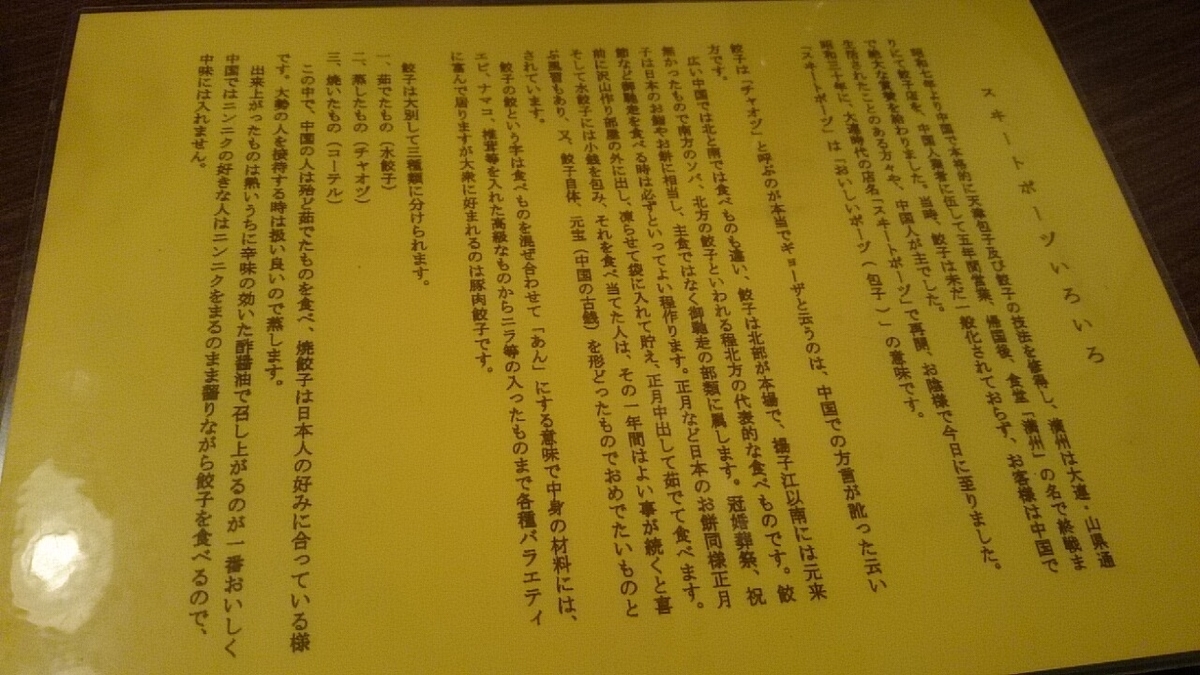 スヰートポーヅいろいろ
昭和七年より中国で本格的に天津包子及び餃子の技法を修得し、満州は大連・山県通
りにて餃子店を、中国人業者に伍して五年間営業、帰国後、食堂「満州」の名で終戦ま
で絶大な賞賛を拾わりました。当時、餃子は未だ一般化されておらず、お客様は中国で
生活されたことのある方々や、中国人が主でした。
昭和三十年に、大連時代の店名「スヰートポーヅ」で再開、お陰様で今日に至りました。
「スヰートポーヅ」は「おいしいポーヅ(包子)」の意味です。
餃子は「チャオヅ」と呼ぶのが本当でギョーザと云うのは、中国での方言が訛った云い
方です。
広い中国では北と南では食べものも違い、餃子は北部が本場で、揚子江以南には元来
無かったもので南方のソバ、北方の餃子といわれる程北方の代表的な食べものです。餃
子は日本のお麺やお餅に相当し、主食ではなく御馳走の部類に属します。冠婚葬祭、祝
節など御馳走を食べる時は必ずといってよい程作ります。正月など日本のお餅同様正月
前に沢山作り部屋の外に出し、凍らせて袋に入れて貯え、正月中出して茹でて食べます。
そして水餃子には小銭を包み、それを食べ当てた人は、その一年間はよい事が続くと喜
ぶ風習もあり、又、餃子自体、元宝(中国の古銭)を形どったものでおめでたいものと
されています。
餃子の餃という字は食べものを混ぜ合わせて「あん」にする意味で中身の材料には、
エビ、ナマコ、椎茸等を入れた高級なものからニラ等の入ったものまで各種バラエティ
に富んで居りますが大衆に好まれるのは豚肉餃子です。
餃子は大別して三種類に分けられます。
一、茹でたもの(水餃子)
二、蒸したもの(チャオヅ)
三、焼いたもの(コーテル)
この中で、中国の人は殆ど茹でたものを食べ、焼餃子は日本人の好みに合っている様
です。大勢の人を接待する時は扱い良いので蒸します。
出来上がったものは熱いうちに辛味の効いた酢醤油で召し上がるのが一番おいしく
中国ではニンニクの好きな人はニンニクをまるのまま齧りながら餃子を食べるので、
中味には入れません。